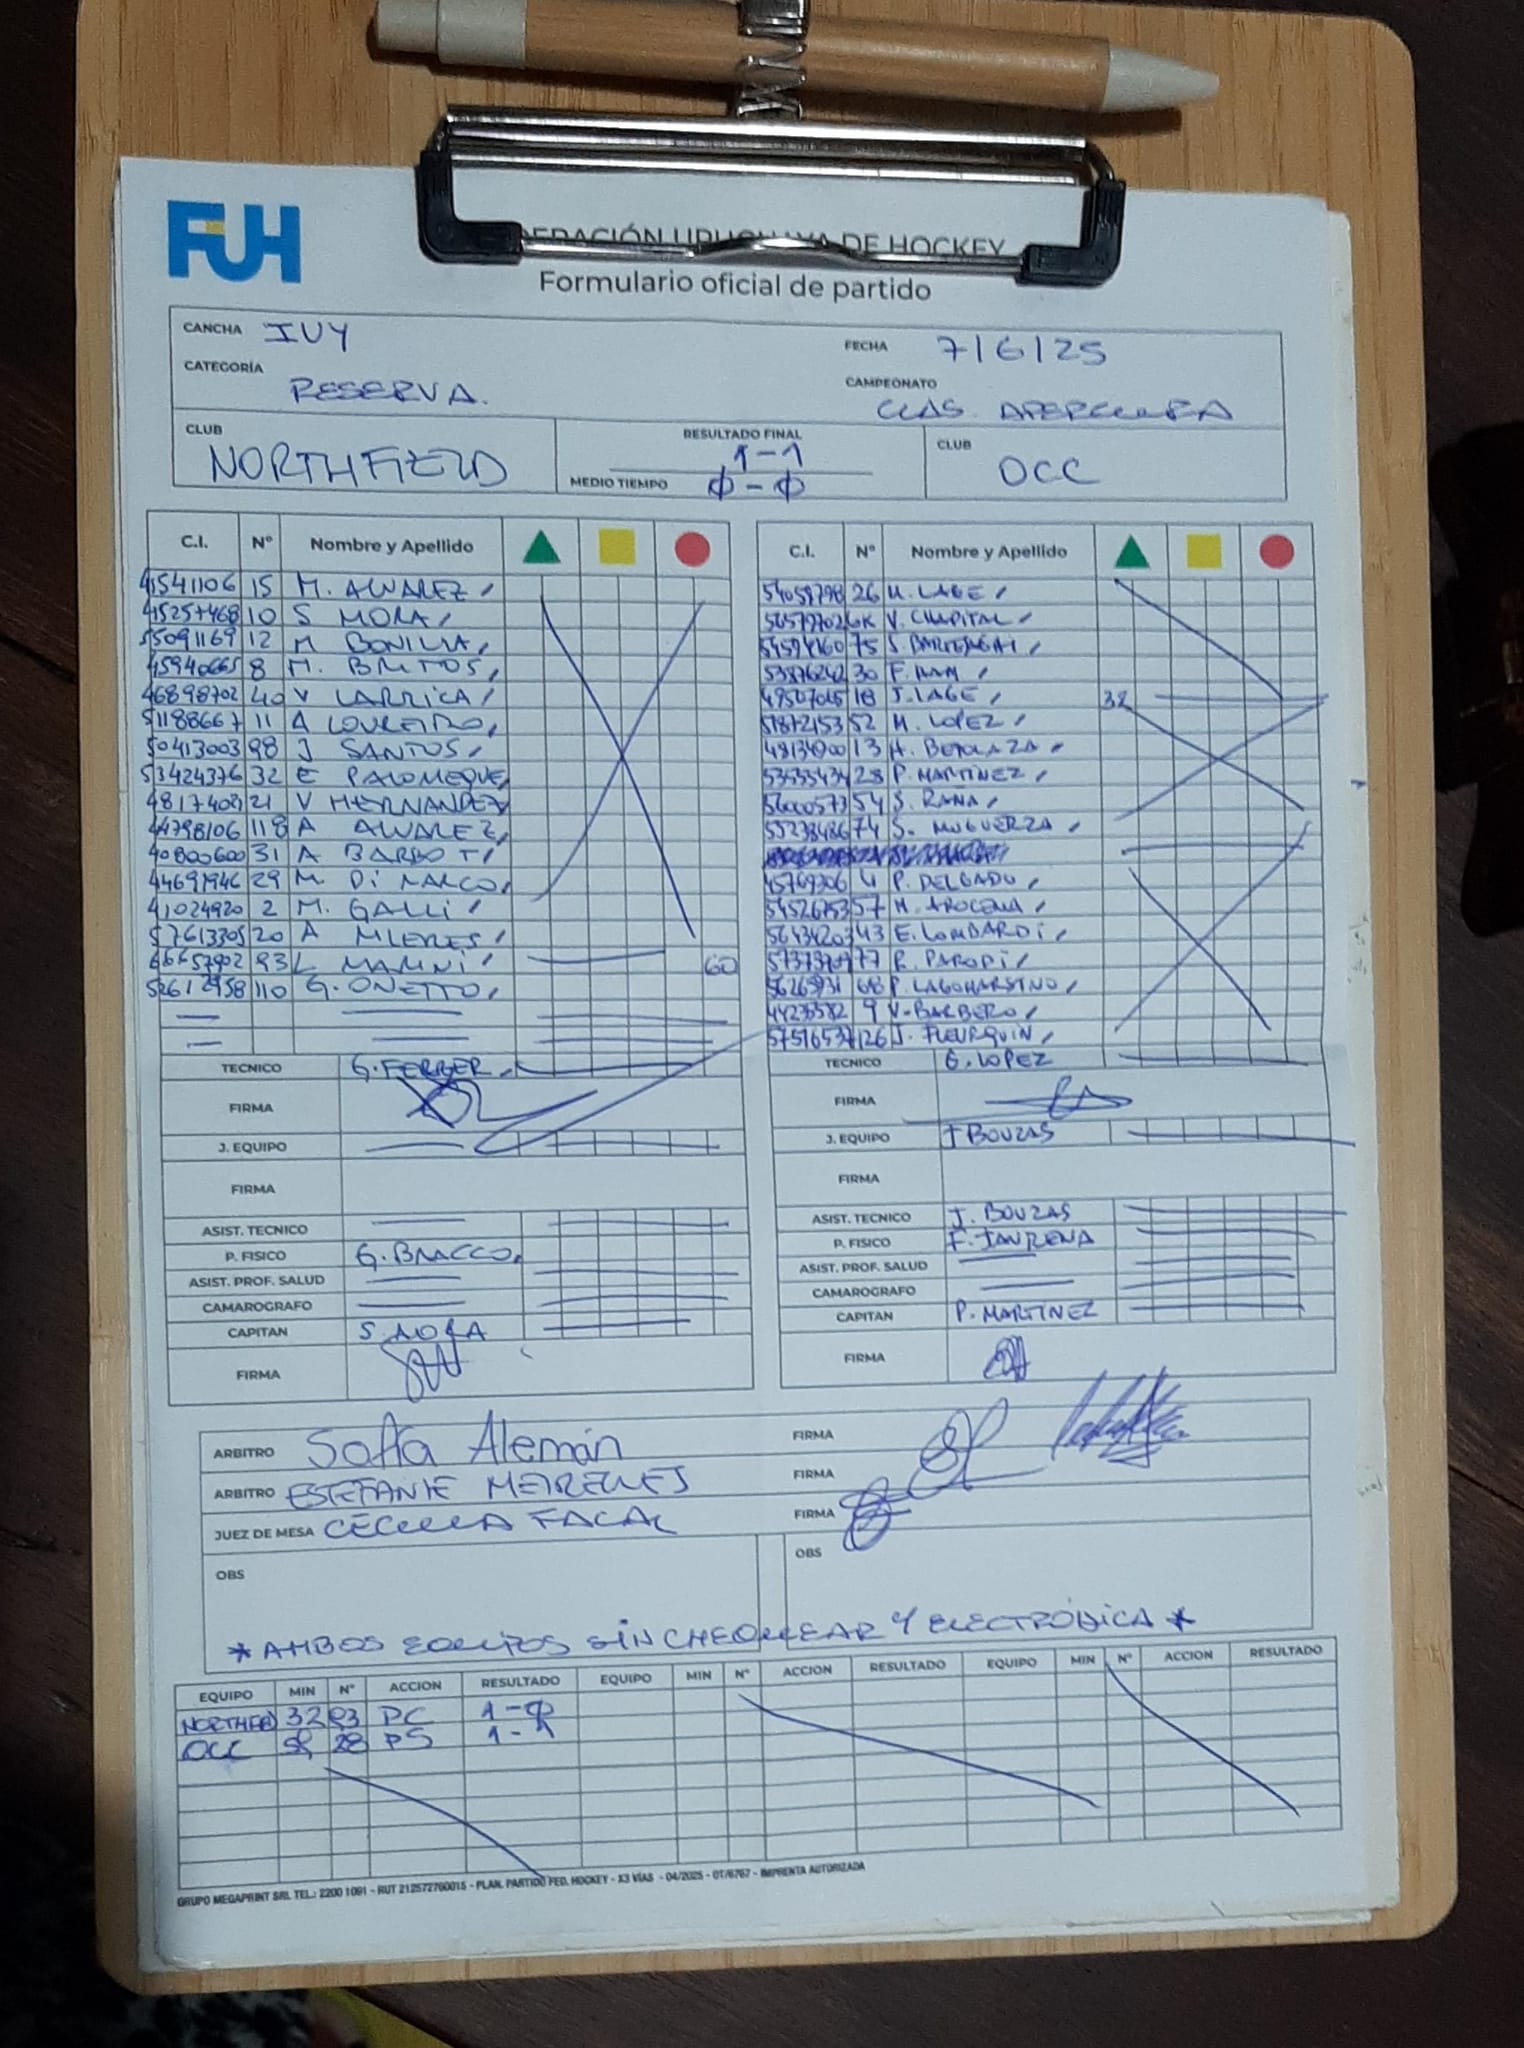 FUH
FEDERACIÓN URUGUAYA DE HOCKEY
Formulario oficial de partido
CANCHA IUY
FECHA 7/6/25
CATEGORÍA RESERVA.
CAMPEONATO CLAS. APERTURA
CLUB NORTHFIELD
RESULTADO FINAL 1-1
MEDIO TIEMPO 0-0
CLUB OCC
C.I. Nº Nombre y Apellido
41541106 15 M. ALVAREZ
45257468 10 S MORA
55091169 12 M BONILLA
45940665 8 M. BRITOS
46898702 40 V LARRICA
51188667 11 A LOUREIRO
50413003 98 J SANTOS
53424376 32 E PALOMEQUE
4817408 21 V HERNANDEZ
44798106 118 A ALVAREZ
40800600 31 A BARBOT
44691946 29 M DI MARCO
41024920 2 M. GALLI
57613305 20 A MIERES
66657902 93 L MARINI 60
52612958 110 G. ONETTO
TECNICO G. FERBER
FIRMA
J. EQUIPO
FIRMA
ASIST. TECNICO
P. FISICO G. BRACCO
ASIST. PROF. SALUD
CAMAROGRAFO
CAPITAN S. MORA
FIRMA
C.I. Nº Nombre y Apellido
54059798 26 M. LAGE
V. CHAPITAL
54594160 75 S.
53876242 30 F.
49507015 18 J. LAGE 32
51872153 52 M. LOPEZ
48134900 13 A. BETOLAZA
28 P. MARTINEZ
56000573 54 S. RAÑA
55238486 74 S. MUGUERZA
45769306 4 P. DELGADO
54526753 57 M. AROCENA
56434203 43 E. LOMBARDI
77 R. PARODI
68 P. LAGOMARSINO
44235582 9 V. BARBERO
57516537 126 J. FLEURQUIN
TECNICO G. LOPEZ
FIRMA
J. EQUIPO J BOUZAS
FIRMA
ASIST. TECNICO J. BOUZAS
P. FISICO F. JAURENA
ASIST. PROF. SALUD
CAMAROGRAFO
CAPITAN P. MARTINEZ
FIRMA
ARBITRO Sofía Alemán FIRMA
ARBITRO ESTEFANIE MEIRELLES FIRMA
JUEZ DE MESA CECILIA FACAL FIRMA
OBS
OBS
* AMBOS EQUIPOS SIN CHEQUEAR Y ELECTRÓNICA *
EQUIPO MIN Nº ACCION RESULTADO EQUIPO MIN Nº ACCION RESULTADO EQUIPO MIN Nº ACCION RESULTADO
NORTHFIELD 32 93 PC 1-0
OCC 28 PS 1-1
GRUPO MEGAPRINT SRL TEL.: 2200 1091 - RUT 212572760015 - PLAN. PARTIDO FED. HOCKEY - X3 VÍAS - 04/2025 - OT/6767 - IMPRENTA AUTORIZADA